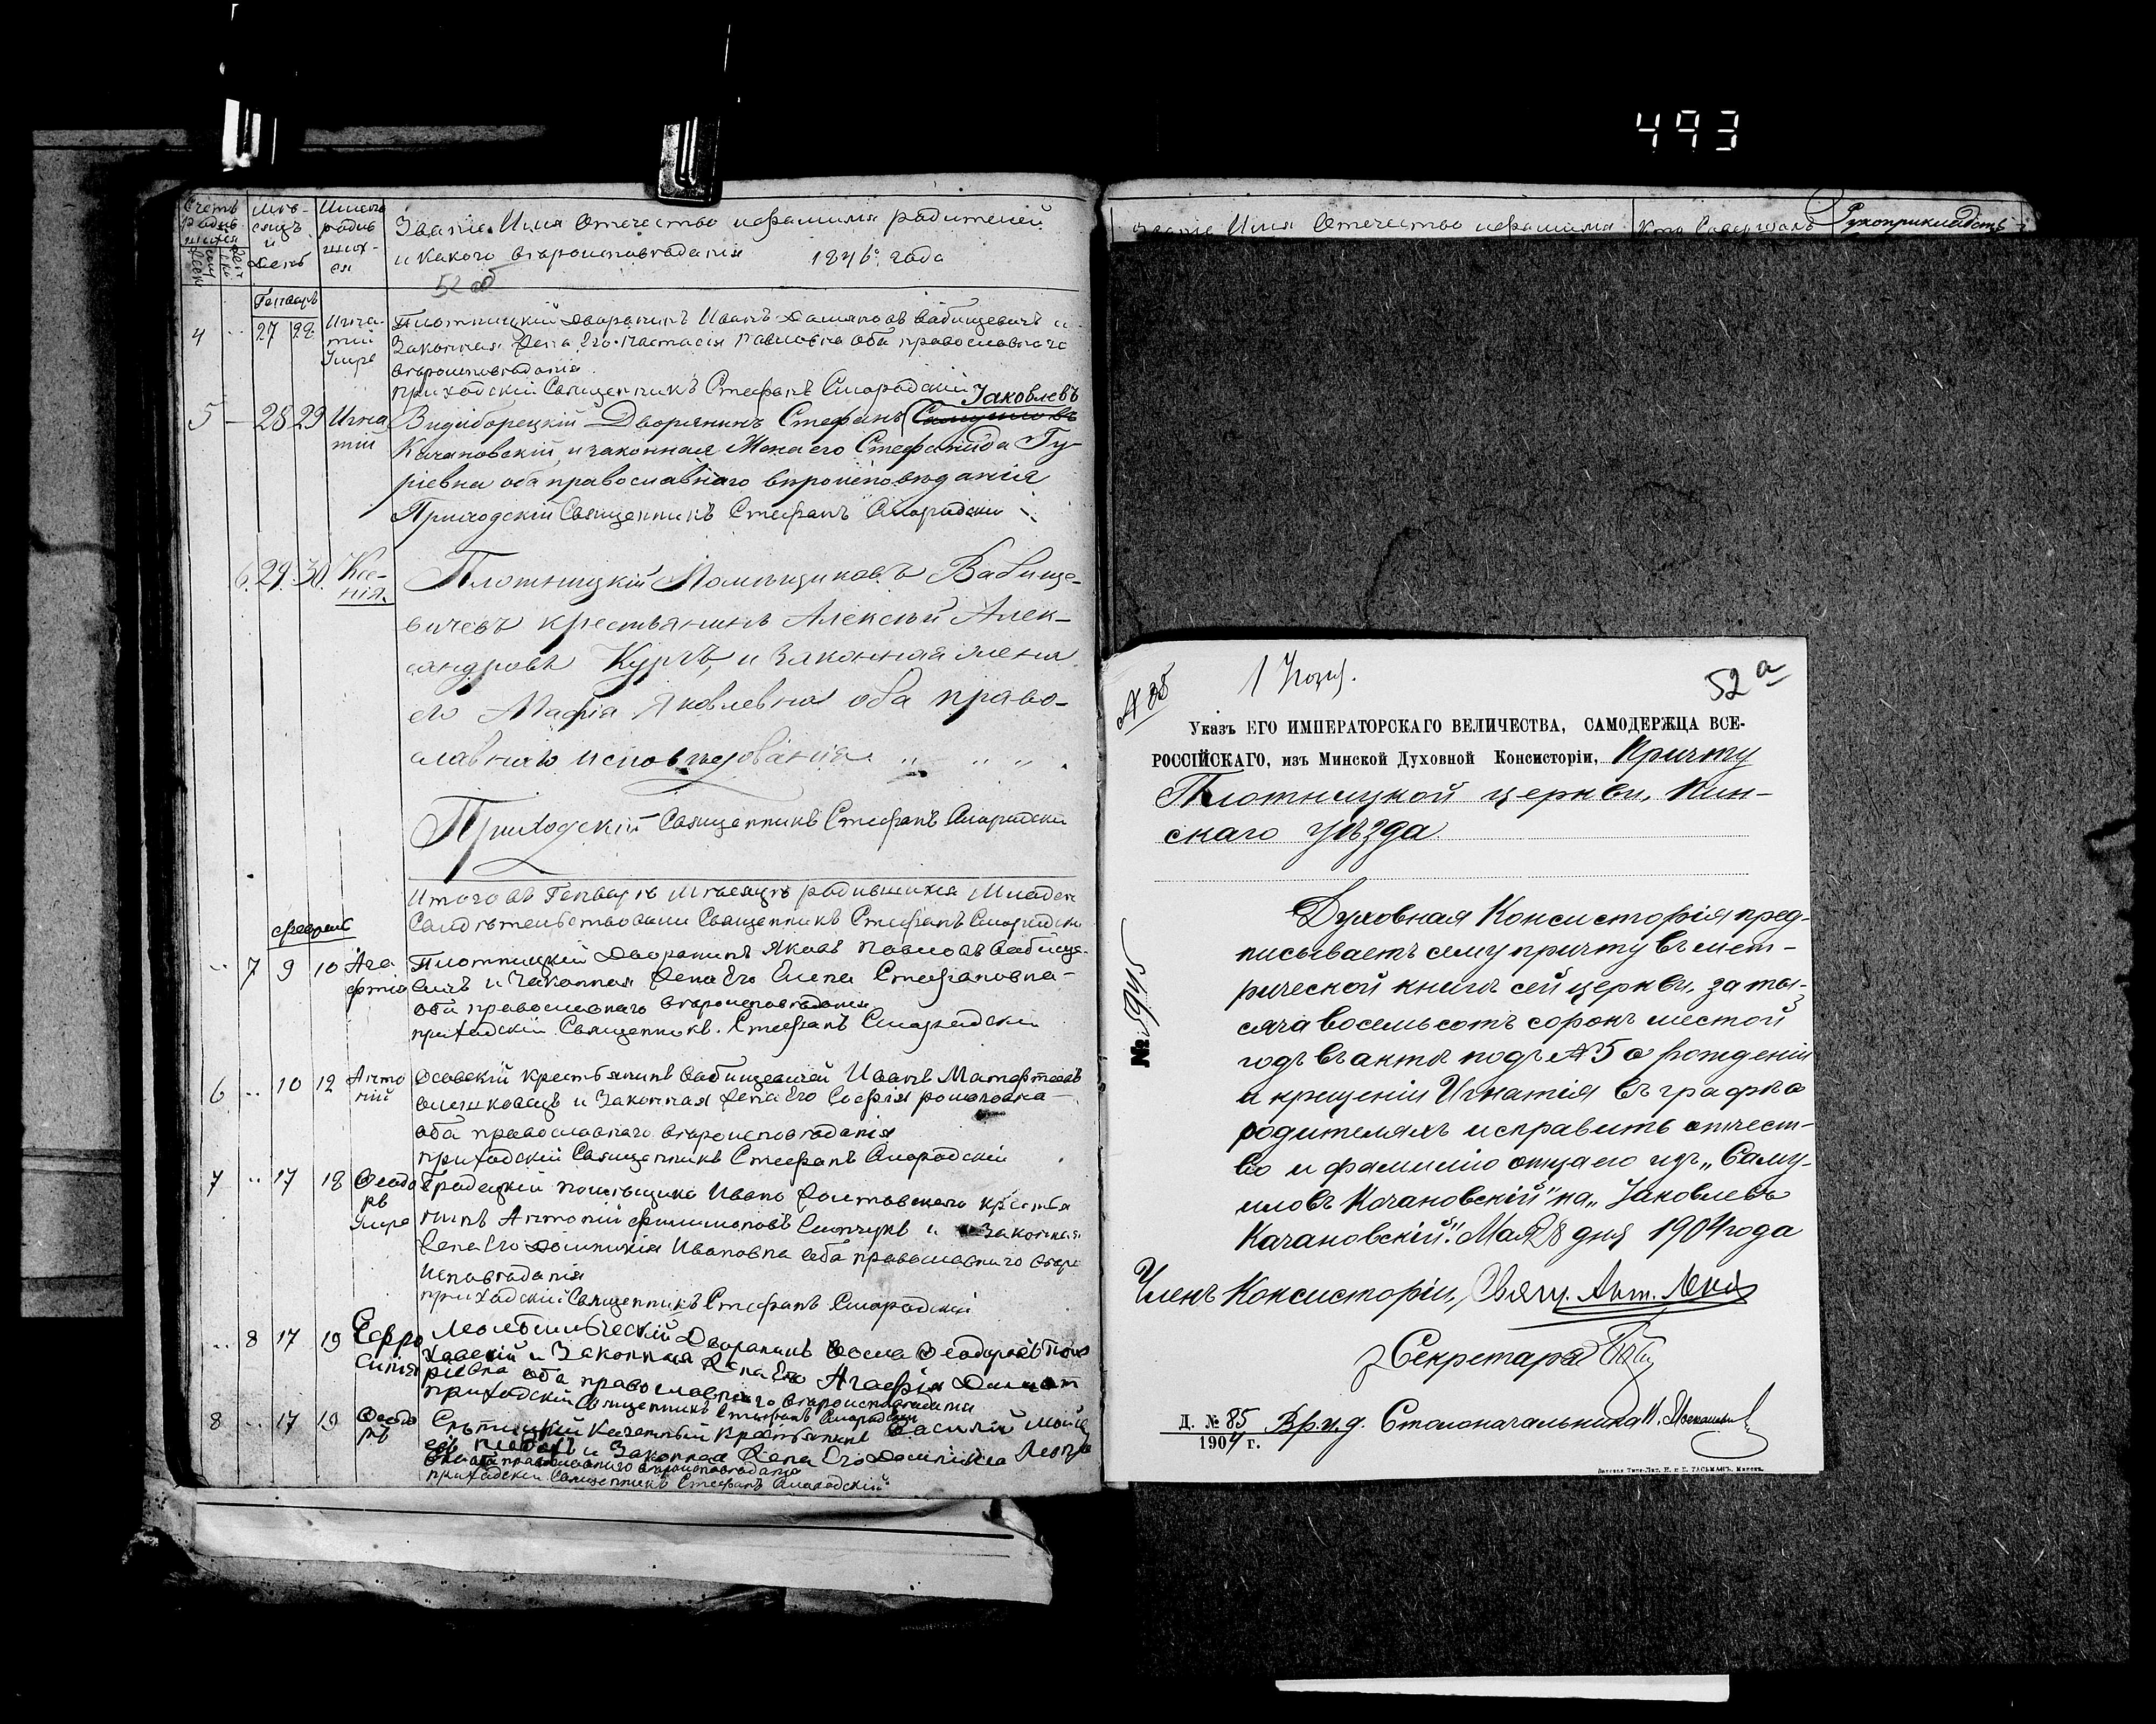 493
Счетъ родив-шихся
Мѣ-сяцъ и день
Имена родив-ших-ся
Званіе Имя Отечество и фамилия родителей
и какого вѣроисповѣданія 1846 года
52 об
Генварь
4 .. 27 28 Игна-тій Умре
Плотницкій дворянинъ Иванъ Даміановъ Вабищевичъ и
Законная жена Его Настасія Павловна оба православнаго
вѣроисповѣданія
приходскій Священникъ Стефанъ Смородскій
Іаковлевъ
5 – 28 29 Игна-тій
Видиборецкій Дворянинъ Стефанъ Самуиловъ
Качановскій, и законная Жена его Стефанида Гу-
ріевна оба православнаго вѣроисповѣданія
Приходскій Священникъ Стефанъ Смородскій
6. 29. 30. Ксе-нія.
Плотницкій Помѣщиковъ Вабище-
вичевъ крестьянинъ Алексѣй Алек-
сандровъ Куръ, и Законная жена
его Марія Яковлевна оба право-
славнаго исповѣдованія
Приходскій Священникъ Стефанъ Смородскій
Итого въ Генварѣ мѣсяцѣ родившихся Младен
Священникъ Стефанъ Смородскій
февраль
.. 7 9 10 Ага-фія
Плотницкій Дворянинъ Яковъ Павловъ Вабище-
вичъ и Законная Жена Его Елена Стефановна
оба православнаго вѣроисповѣданія
приходскій Священникъ Стефанъ Смородскій
6 .. 10 12 Анто-ній
Осовскій крестьянинъ Вабищевичей Иванъ Матфѣевъ
и Законная жена Его Софія Романовна
оба православнаго вѣроисповѣданія
приходскій Священникъ Стефанъ Смородскій
7 .. 17 18 Ѳеодоръ Умре
Градецкій помѣщика Ивана крестья
нинъ Антоній Филимоновъ и Законная
Жена Его Домникія Ивановна оба православнаго вѣро
исповѣданія
приходскій Священникъ Стефанъ Смородскій
.. 8 17 19 Евфро-синія
Дворянинъ Ѳома Ѳеодоровъ
и Законная Жена Его Агафія
оба православнаго вѣроисповѣданія
приходскій Священникъ Стефанъ Смородскій
8 .. 17 19 Ѳеодоръ
Казенный Крестьянинъ Василій
и Законная Жена Его Домникія
оба православнаго вѣроисповѣданія
приходскій Священникъ Стефанъ Смородскій
Званіе Имя Отечество и фамилия Кто Совершалъ Рукоприкладств
52 а
Указъ ЕГО ИМПЕРАТОРСКАГО ВЕЛИЧЕСТВА, САМОДЕРЖЦА ВСЕ-
РОССІЙСКАГО, изъ Минской Духовной Консисторіи, Причту
Плотницкой церкви, Пин-
скаго уѣзда
Духовная Консисторія пред-
писываетъ сему причту въ мет-
рической книгѣ сей церкви, за ты-
сяча восемьсотъ сорокъ шестой
годъ въ актѣ подъ № 5 о рожденіи
и крещеніи Игнатія въ графѣ о
родителяхъ исправить отчест-
во и фамилію отца его изъ „Саму-
иловъ Качановскій" на „Іаковлевъ
Качановскій". Мая 28 дня 1904 года
№ 5945
Членъ Консисторіи, Свящ. Ант.
Секретарь
Д. № 85 Вр.и.д. Столоначальника
1904 г.